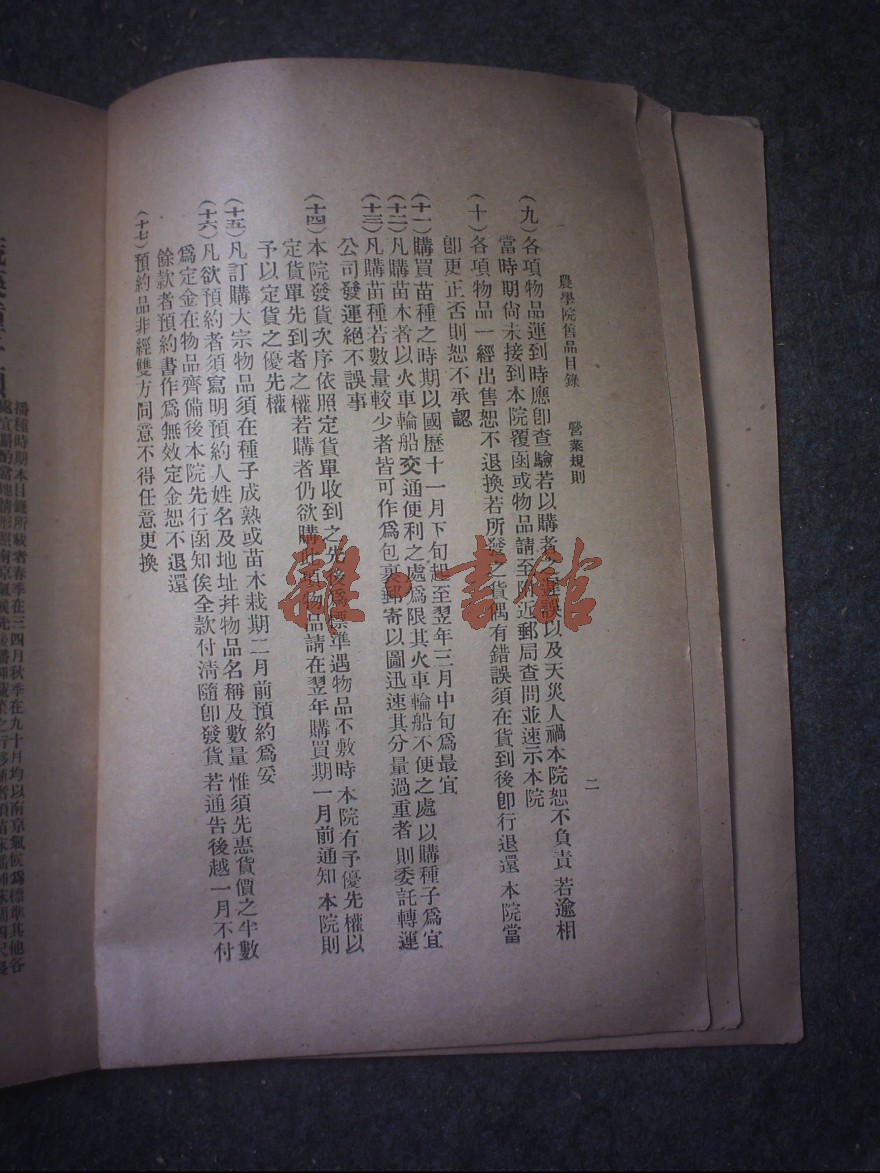 農學院售品目錄 營業規則 二
(九)各項物品運到時應卽查驗若以購者之遲誤以及天災人禍本院恕不負責若逾相
當時期尙未接到本院覆函或物品請至附近郵局查問並速示本院
(十)各項物品一經出售恕不退換若所發之貨偶有錯誤須在貨到後卽行退還本院當
卽更正否則恕不承認
(十一)購買苗種之時期以國歷十一月下旬起至翌年三月中旬爲最宜
(十二)凡購苗木者以火車輪船交通便利之處爲限其火車輪船不便之處以購種子爲宜
(十三)凡購苗種若數量較少者皆可作爲包裹郵寄以圖迅速其分量過重者則委託轉運
公司發運絕不誤事
(十四)本院發貨次序依照定貨單收到之先後爲標準遇物品不敷時本院有予優先權以
定貨單先到者之權若購者仍欲購此項物品請在翌年購買期一月前通知本院則
予以定貨之優先權
(十五)凡訂購大宗物品須在種子成熟或苗木栽期二月前預約爲妥
(十六)凡欲預約者須寫明預約人姓名及地址幷物品名稱及數量惟須先惠貨價之半數
爲定金在物品齊備後本院先行函知俟全款付清隨卽發貨若通告後越一月不付
餘款者預約書作爲無效定金恕不退還
(十七)預約品非經雙方同意不得任意更換
雜·書館
播種時期本目錄所載者春季在三四月秋季在九十月均以南京氣候爲標準其他各